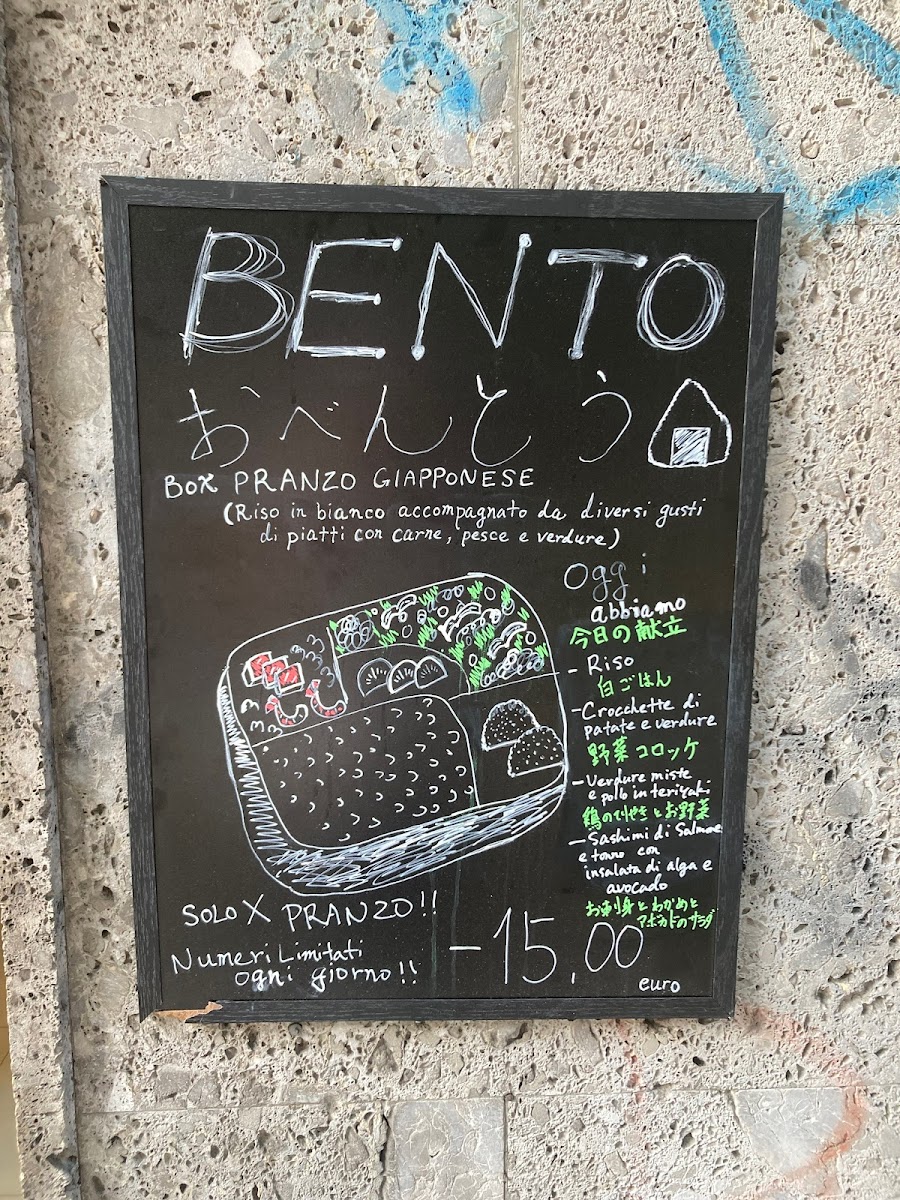 BENTO
おべんとう
BOX PRANZO GIAPPONESE
(Riso in bianco accompagnato da diversi gusti
di piatti con carne, pesce e verdure)
Oggi
abbiamo
今日の献立
- Riso
白ごはん
- Crocchette di
patate e verdure
野菜コロッケ
- Verdure miste
e pollo in teriyaki
鶏のてりやきとお野菜
- Sashimi di Salmone
e tonno con
insalata di alga e
avocado
お刺身とわかめと
アボカドのサラダ
SOLO X PRANZO!!
Numeri Limitati
ogni giorno!!
- 15,00
euro